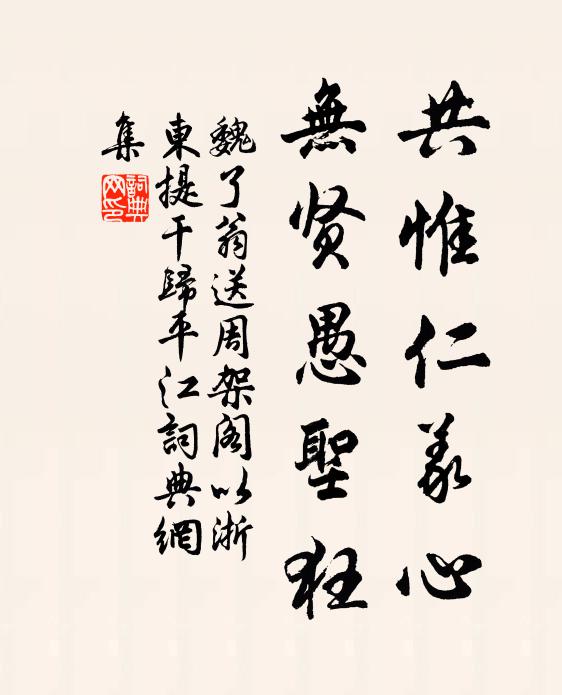 共惟仁义心
無贤愚聖狂
魏了翁送周架阁以浙
東提干歸平江詞典網
集
詞典網印